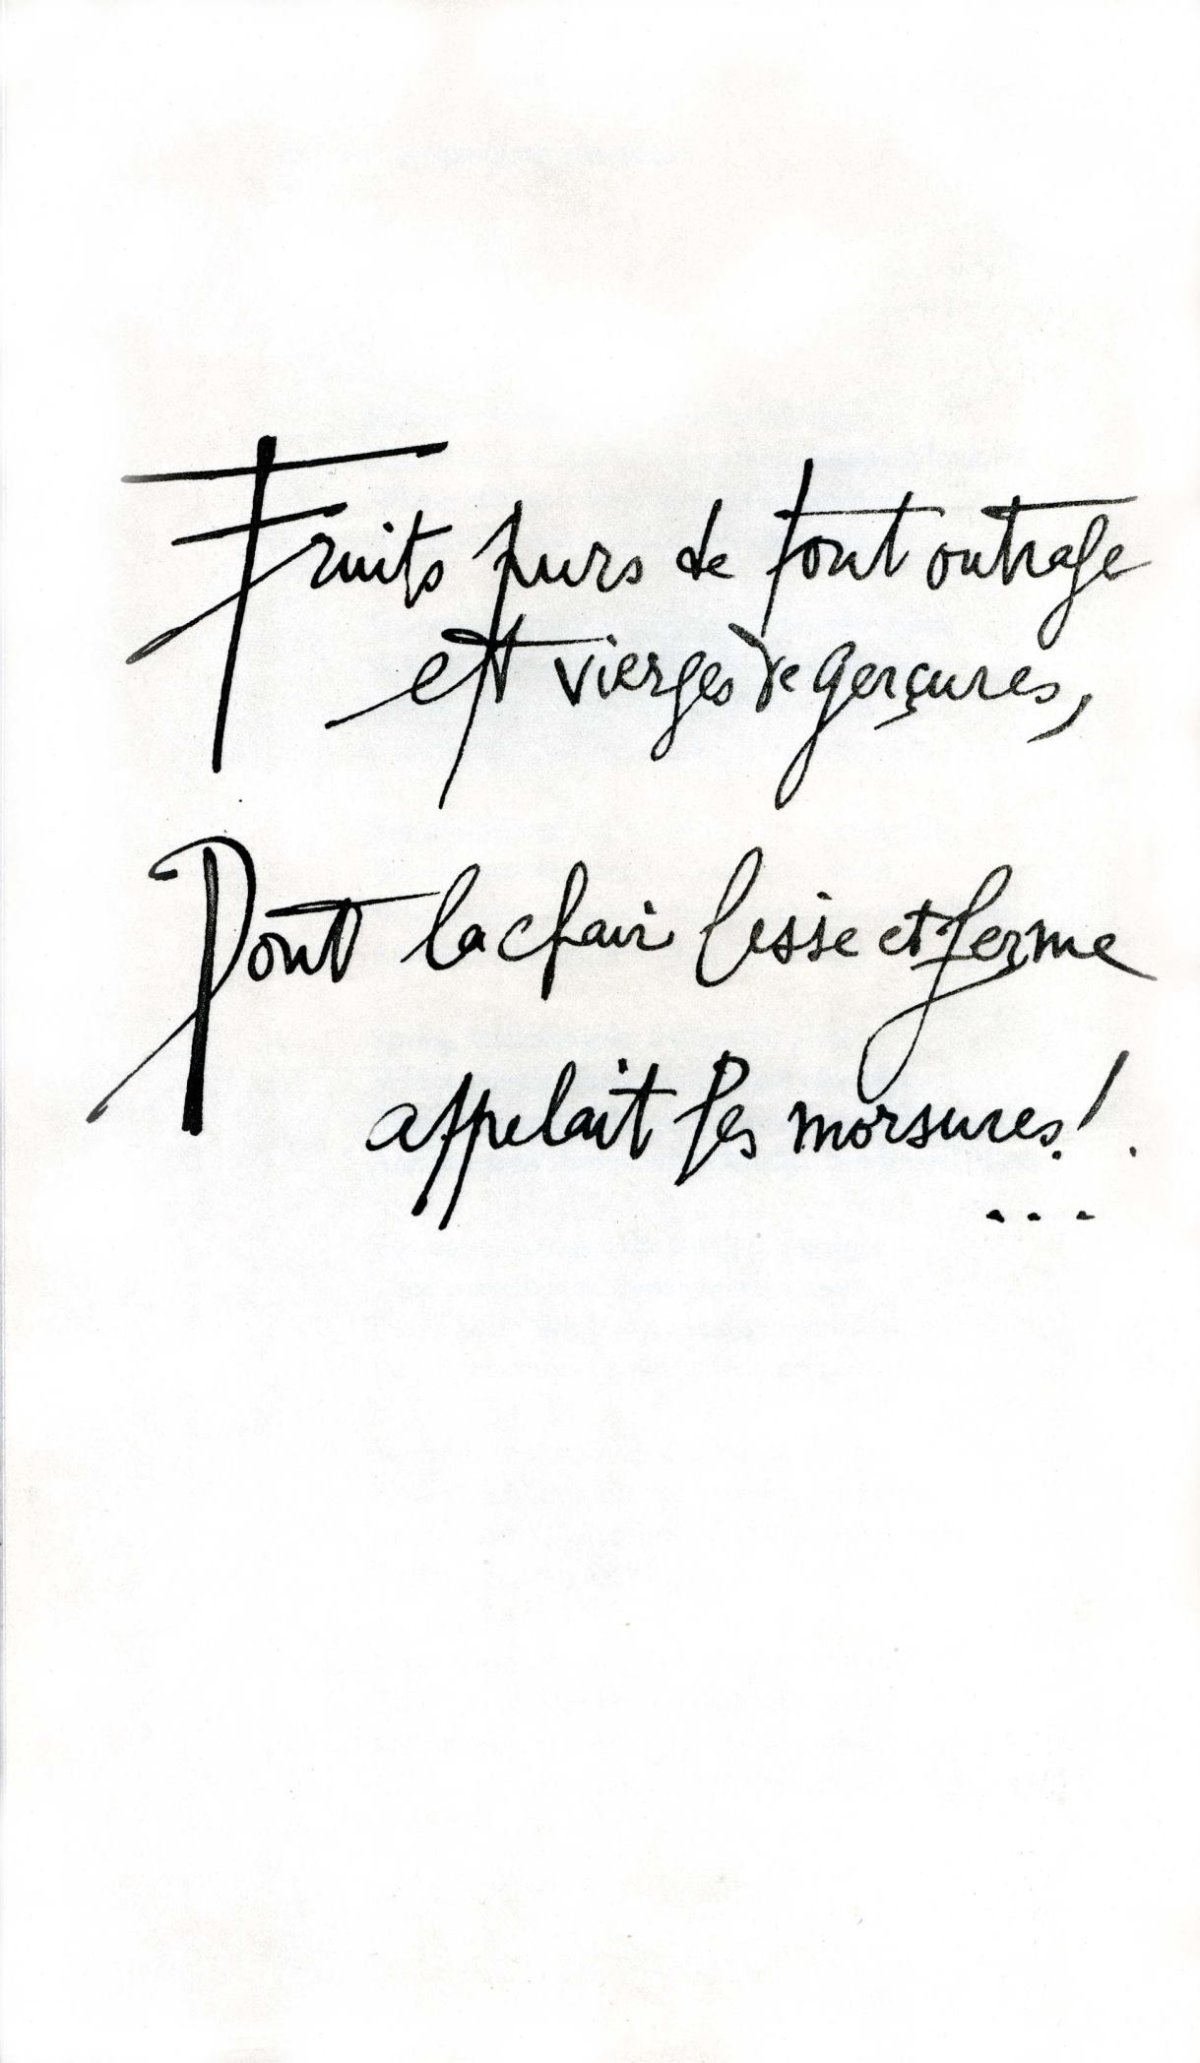 Fruits purs de tout outrage
et vierges de gerçures,
Dont la chair lisse et ferme
appelait les morsures!.
...